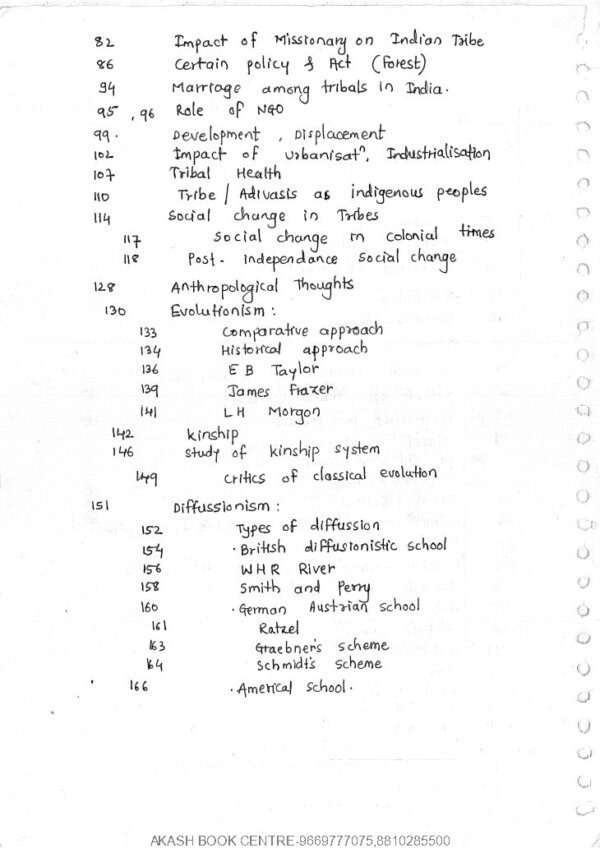 82 Impact of Missionary on Indian Tribe
86 Certain policy & Act (Forest)
94 Marriage among tribals in India.
95, 96 Role of NGO
99. Development, Displacement
102 Impact of urbanisatn, Industrialisation
107 Tribal Health
110 Tribe / Adivasis as indigenous peoples
114 Social change in Tribes
117 Social change in colonial times
118 Post - independance social change
128 Anthropological Thoughts
130 Evolutionism :
133 Comparative approach
134 Historical approach
136 E B Taylor
139 James Frazer
141 L H Morgon
142 kinship
146 study of kinship system
149 critics of classical evolution
151 Diffussionism :
152 Types of diffussion
154 . British diffusionistic school
156 WHR River
158 Smith and Perry
160 . German Austrian school
161 Ratzel
163 Graebner's scheme
164 Schmidt's scheme
166 . Americal school .
AKASH BOOK CENTRE-9669777075,8810285500